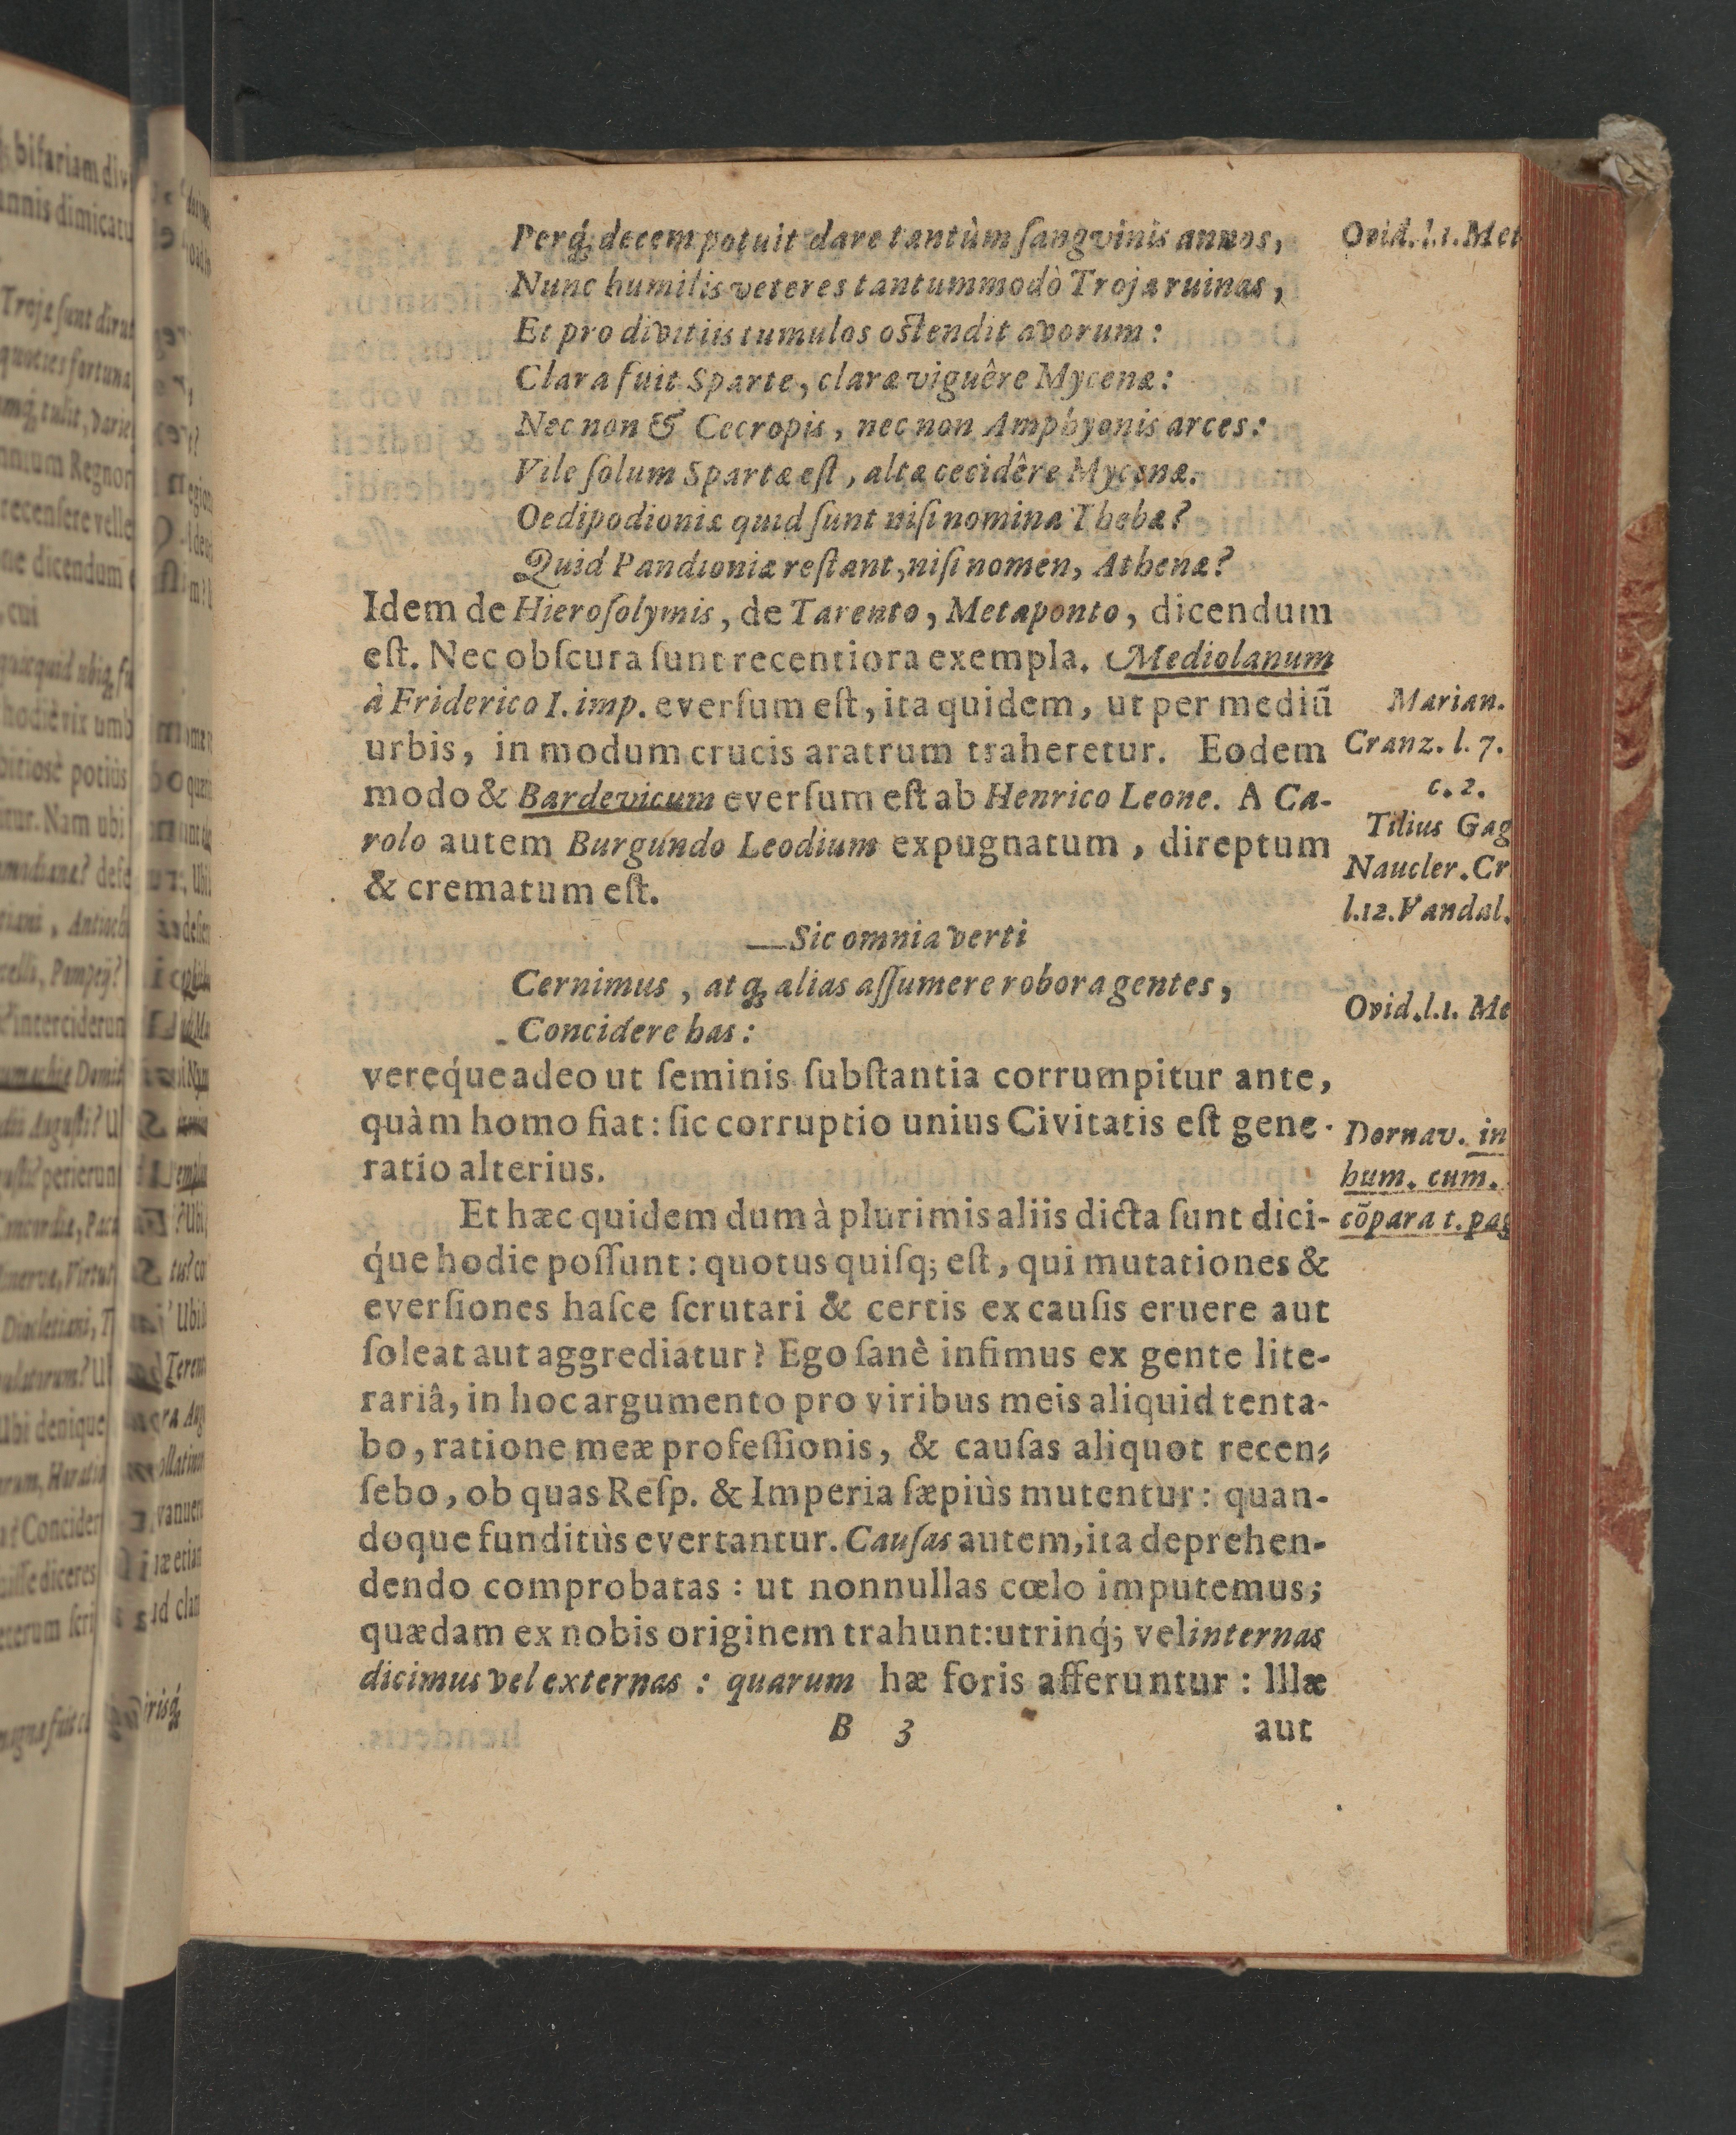 Perq́; decem potuit dare tantùm ſangvinis annos,
Nunc humilis veteres tantummodò Troja ruinas,
Et pro divitiis tumulos oſtendit avorum:
Clara fuit Sparte, claræ viguêre Mycenæ:
Nec non & Cecropis, nec non Amphyonis arces:
Vile ſolum Spartæ eſt, altæ cecidêre Mycenæ.
Oedipodioniæ quid ſunt niſi nomina Thebæ?
Quid Pandioniæ reſtant, niſi nomen, Athenæ?
Idem de Hieroſolymis, de Tarento, Metaponto, dicendum
eſt. Nec obſcura ſunt recentiora exempla. Mediolanum
à Friderico I. imp. everſum eſt, ita quidem, ut per mediũ
urbis, in modum crucis aratrum traheretur. Eodem
modo & Bardevicum everſum eſt ab Henrico Leone. A Ca-
rolo autem Burgundo Leodium expugnatum, direptum
& crematum eſt.
—Sic omnia verti
Cernimus, atq; alias aſſumere robora gentes,
Concidere has:
vereq́ue adeo ut ſeminis ſubſtantia corrumpitur ante,
quàm homo fiat: ſic corruptio unius Civitatis eſt gene-
ratio alterius.
Et hæc quidem dum à plurimis aliis dicta ſunt dici-
q́ue hodie poſſunt: quotus quiſq; eſt, qui mutationes &
everſiones haſce ſcrutari & certis ex cauſis eruere aut
ſoleat aut aggrediatur? Ego ſanè infimus ex gente lite-
rariâ, in hoc argumento pro viribus meis aliquid tenta-
bo, ratione meæ profeſſionis, & cauſas aliquot recen-
ſebo, ob quas Reſp. & Imperia ſæpiùs mutentur: quan-
doque funditùs evertantur. Cauſas autem, ita deprehen-
dendo comprobatas: ut nonnullas cœlo imputemus;
quædam ex nobis originem trahunt: utrinq́; vel internas
dicimus vel externas: quarum hæ foris afferuntur: Illæ
B 3 aut
Ovid. l.1. Met
Marian.
Cranz. l. 7.
c. 2.
Tilius Gag
Naucler. Cr
l.12. Vandal.
Ovid. l.1. Me
Dornav. in
hum. cum.
cõpara t. pag